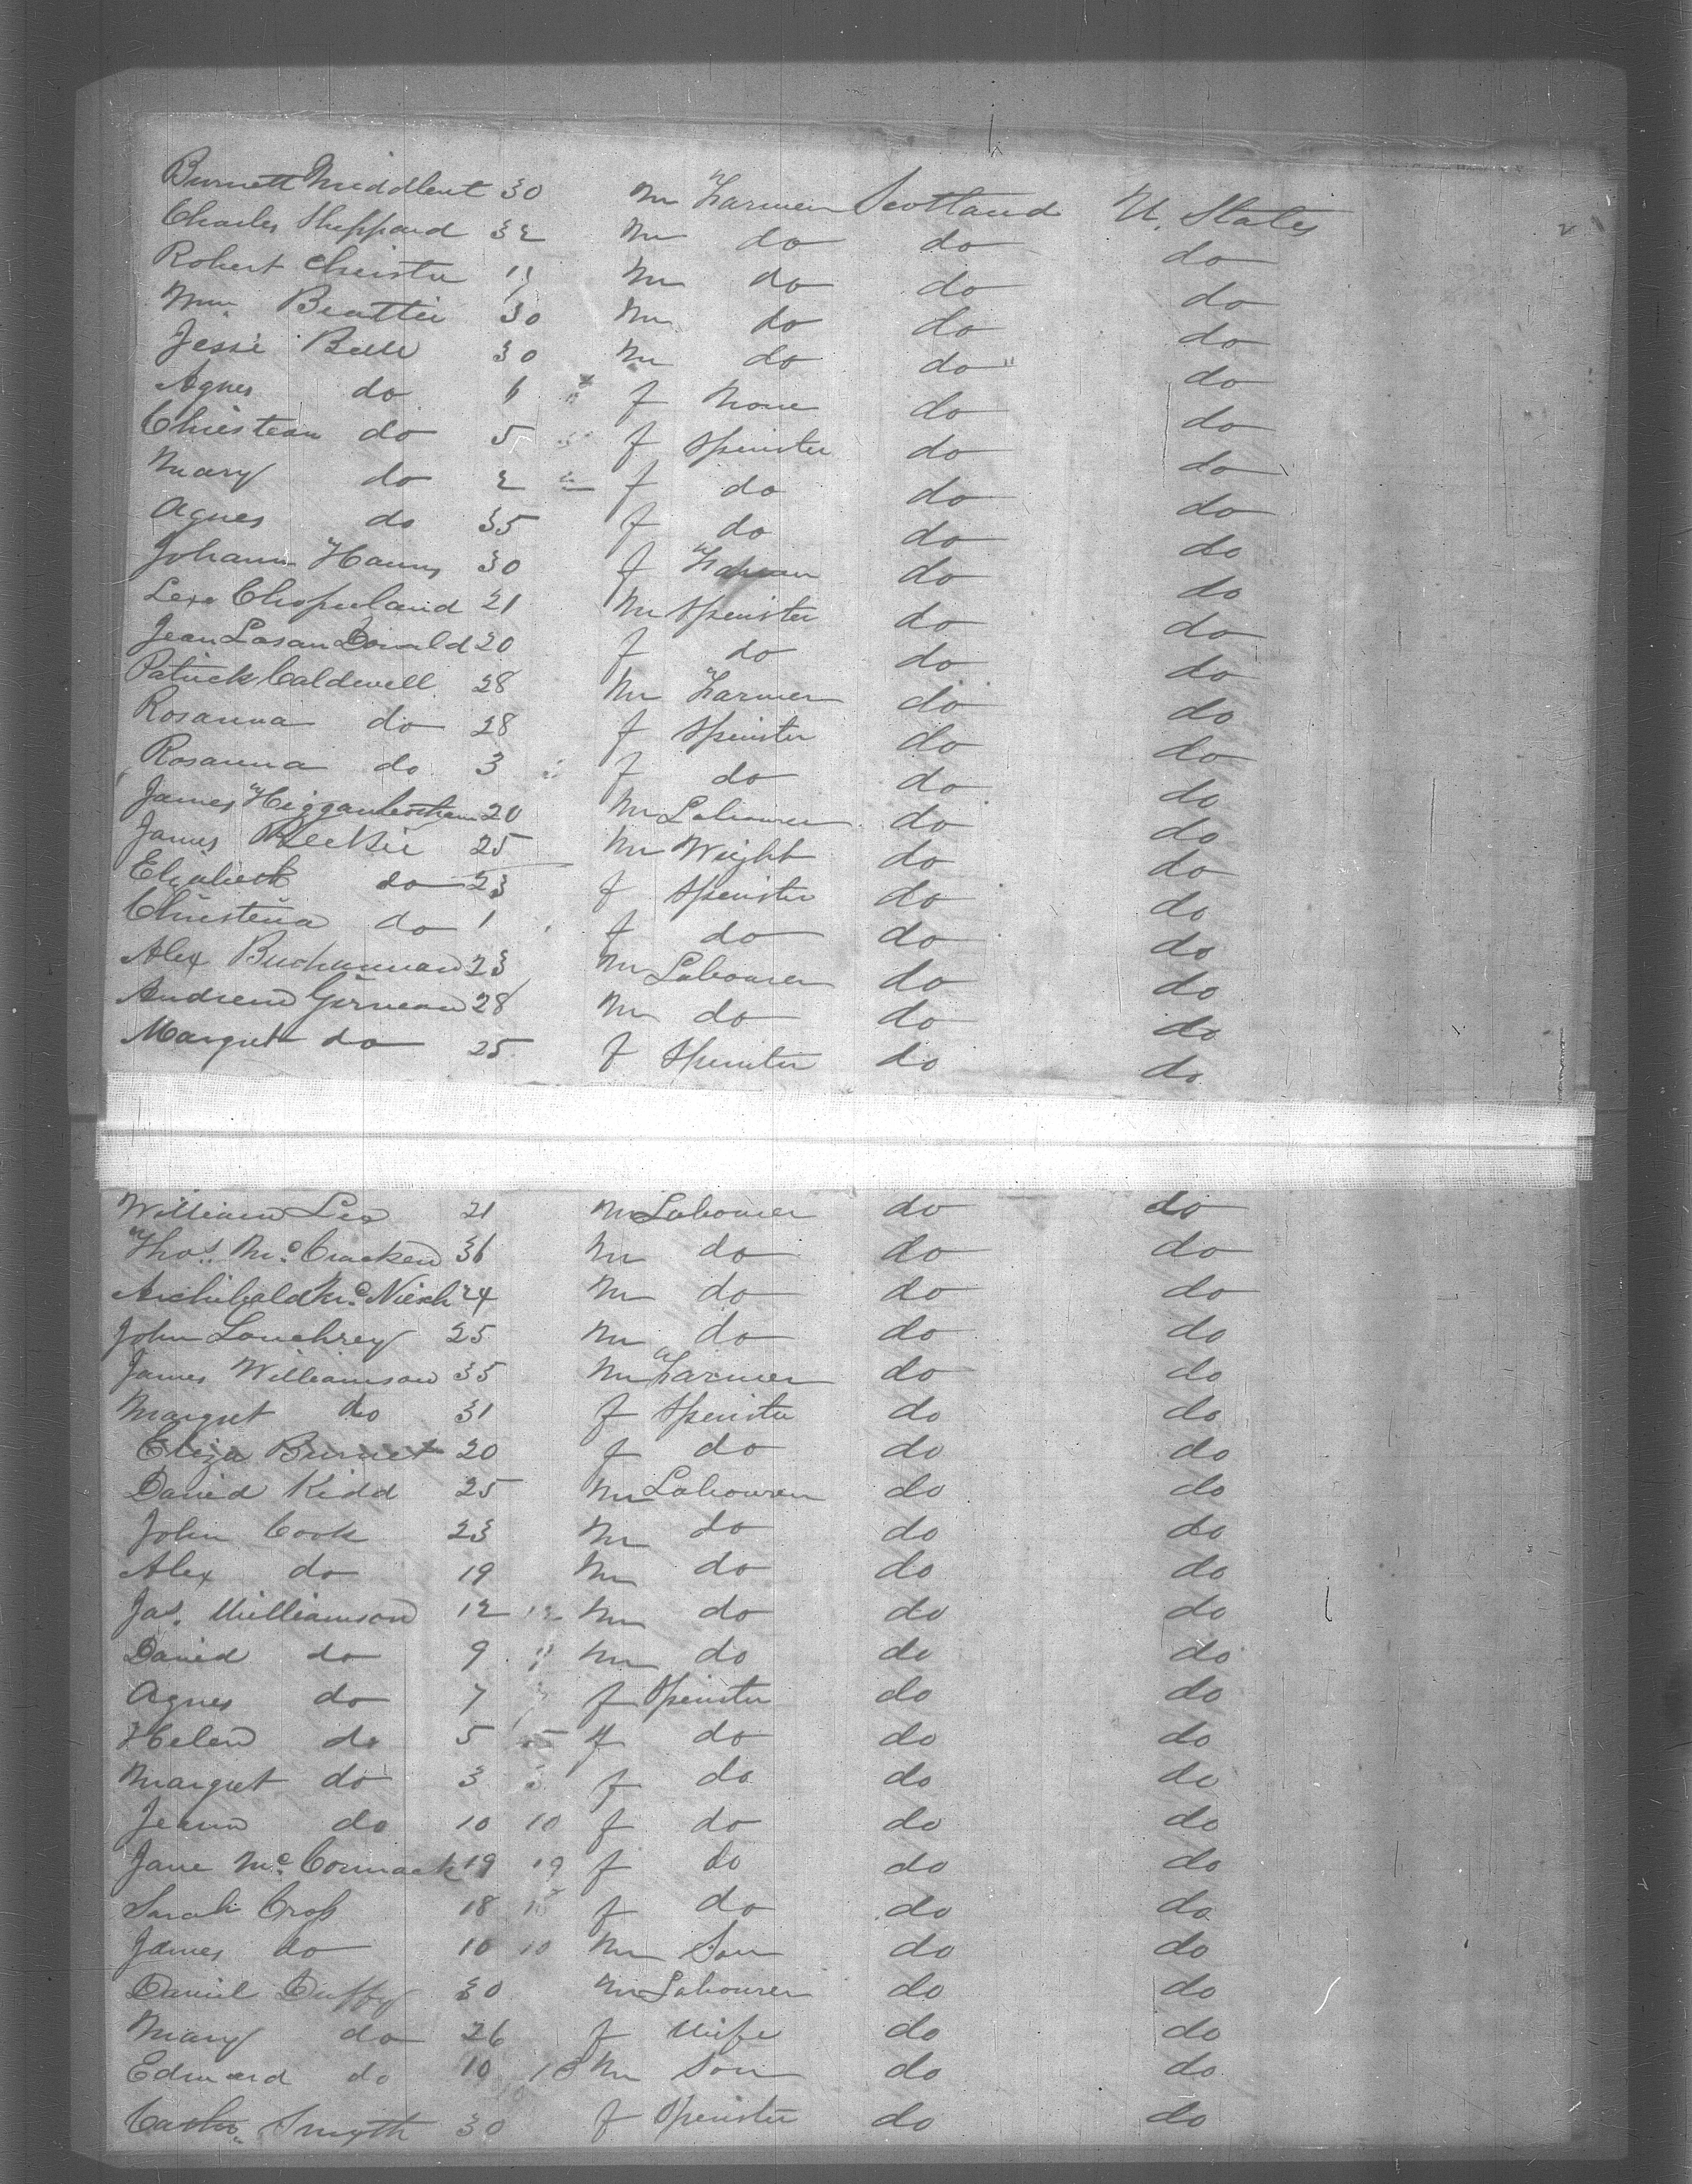 Burnett Middlent 30 M Farmer Scotland U. States
Charles Sheppard 32 M do do do
Robert Christie 19 M do do do
Wm. Beattie 30 M do do do
Jessie Bell 30 M do do do
Agnes do 6 f None do do
Christean do 5 f Spinster do do
Mary do 2 f do do do
Agnes do 35 f do do do
Johann Hanny 30 f do do
21 M Spinster do do
Jean Donald 20 f do do do
Patrick Caldwell 28 M Farmer do do
Rosanna do 28 f Spinster do do
Rosanna do 3 f do do do
James Higganbotham 20 M Labourer do do
James Reekie 25 M Wright do do
Elizabeth do 23 f Spinster do do
Christena do 1 f do do do
Alex Buchannan 23 M Labourer do do
Andrew 28 M do do do
Margret do 25 f Spinster do do
William Lee 21 M Labourer do do
Thos. McCracken 36 M do do do
Archibald 24 M do do do
John Louchrey 25 M do do do
James Williamson 35 M Farmer do do
Margret do 31 f Spinster do do
Eliza Burnet 20 f do do do
David Kidd 25 M Labourer do do
John Cook 23 M do do do
Alex do 19 M do do do
Jas. Williamson 12 12 M do do do
David do 9 9 M do do do
Agnes do 7 7 f Spinster do do
Helen do 5 5 f do do do
Margret do 3 3 f do do do
do 10 10 f do do do
Jane McCormack 19 19 f do do do
Sarah Cross 18 18 f do do do
James do 10 10 M Son do do
Daniel Duffy 30 M Labourer do do
Mary do 26 f Wife do do
Edward do 10 10 M Son do do
Smyth 30 f Spinster do do